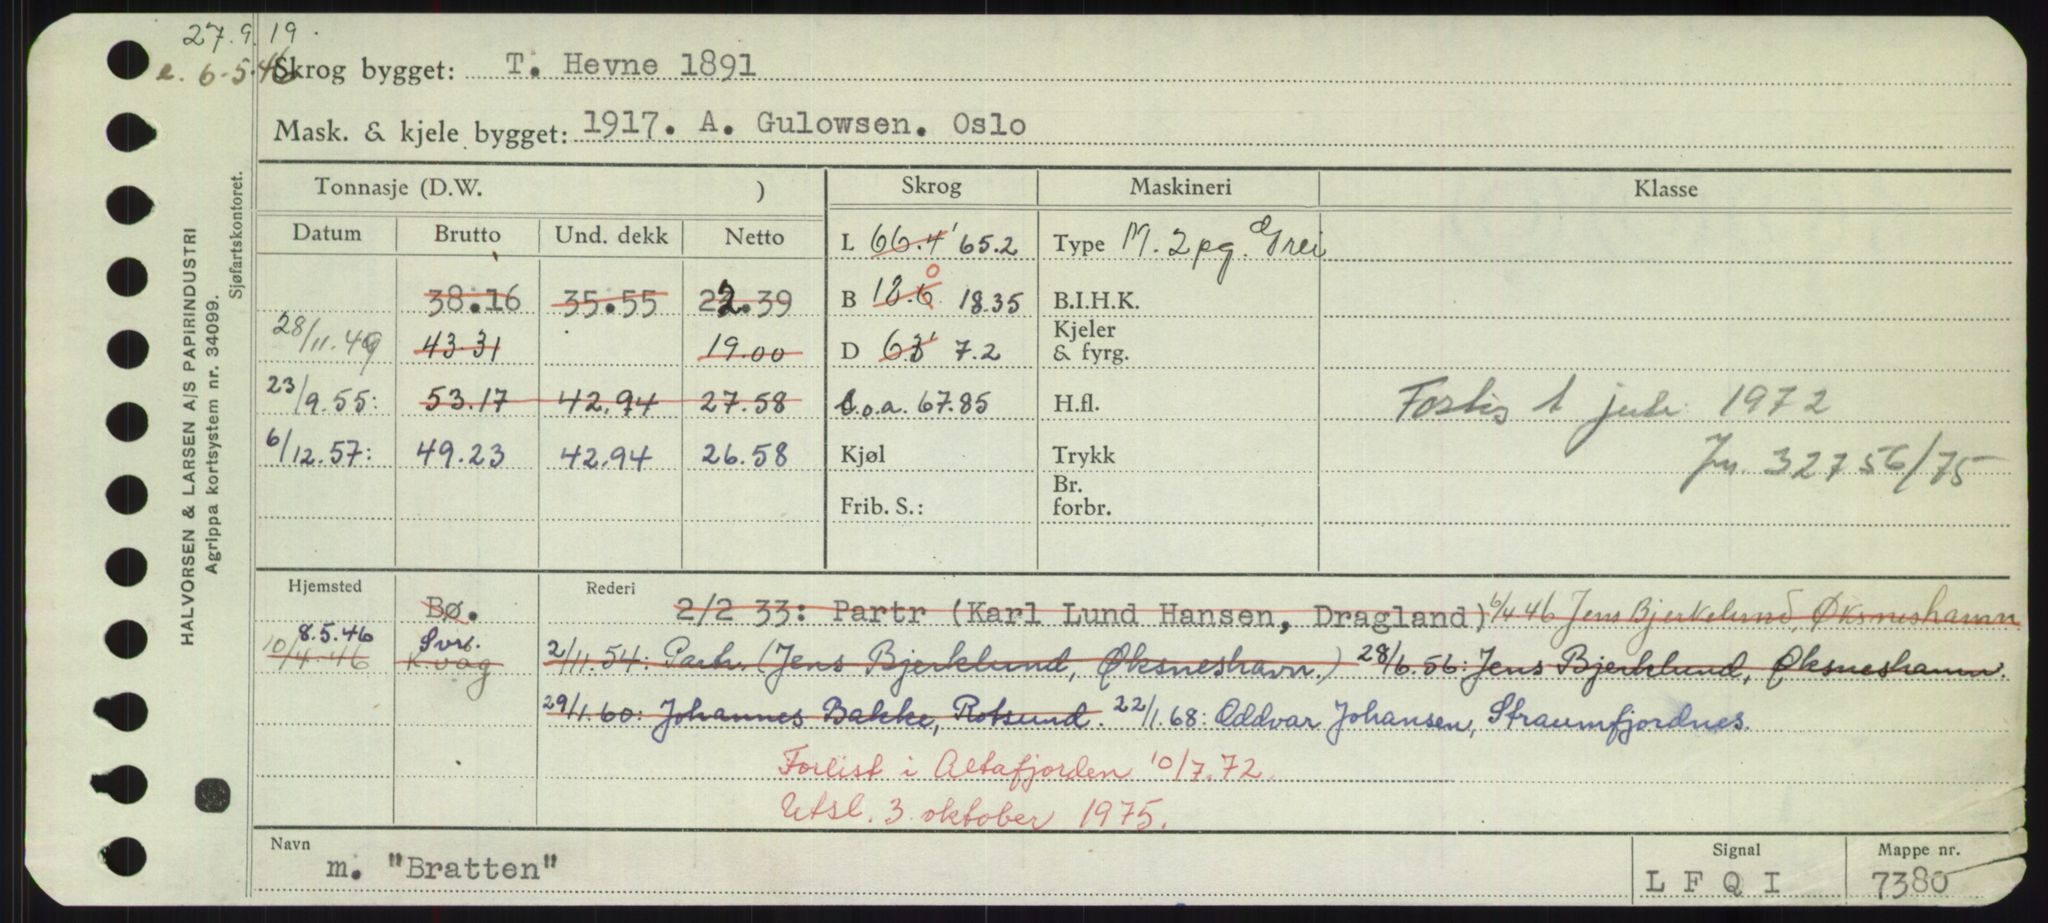 27.9.19.
e. 6-5.46
Skrog bygget: T. Hevne 1891
Mask. & kjele bygget: 1917. A. Gulowsen. Oslo
Tonnasje (D.W. ) Skrog Maskineri Klasse
Datum Brutto Und. dekk Netto L 66.4' 65.2 Type M. 2pg. Grei
38.16 35.55 22.39 B 18.6 18.35 B.I.H.K.
28/11.49 43.31 19.00 D 7.2 Kjeler & fyrg.
23/9.55: 53.17 42.94 27.58 L.o.a. 67.85 H.fl. 1972
6/12.57: 49.23 42.94 26.58 Kjøl Trykk Jn. 32756/75
Frib. S.: Br. forbr.
Hjemsted Bø. Rederi 2/2 33: Partr (Karl Lund Hansen, Dragland) 6/4 46 Jens Bjerkelund, Øksneshamn
8.5.46 Svv.
10/4.46 K.våg 2/11.54: Partr. (Jens Bjerklund, Øksneshavn.) 28/6.56: Jens Bjerklund, Øksneshamn.
29/1.60: Johannes Bakke, Rotsund. 22/1.68: Oddvar Johansen, Straumfjordnes.
Forlist i Altafjorden 10/7.72.
Utsl. 3. oktober 1975.
Navn Signal Mappe nr.
m. "Bratten" L F Q I 7380
HALVORSEN & LARSEN A/S PAPIRINDUSTRI
Agrippa kortsystem nr. 34099.
Sjøfartskontoret.